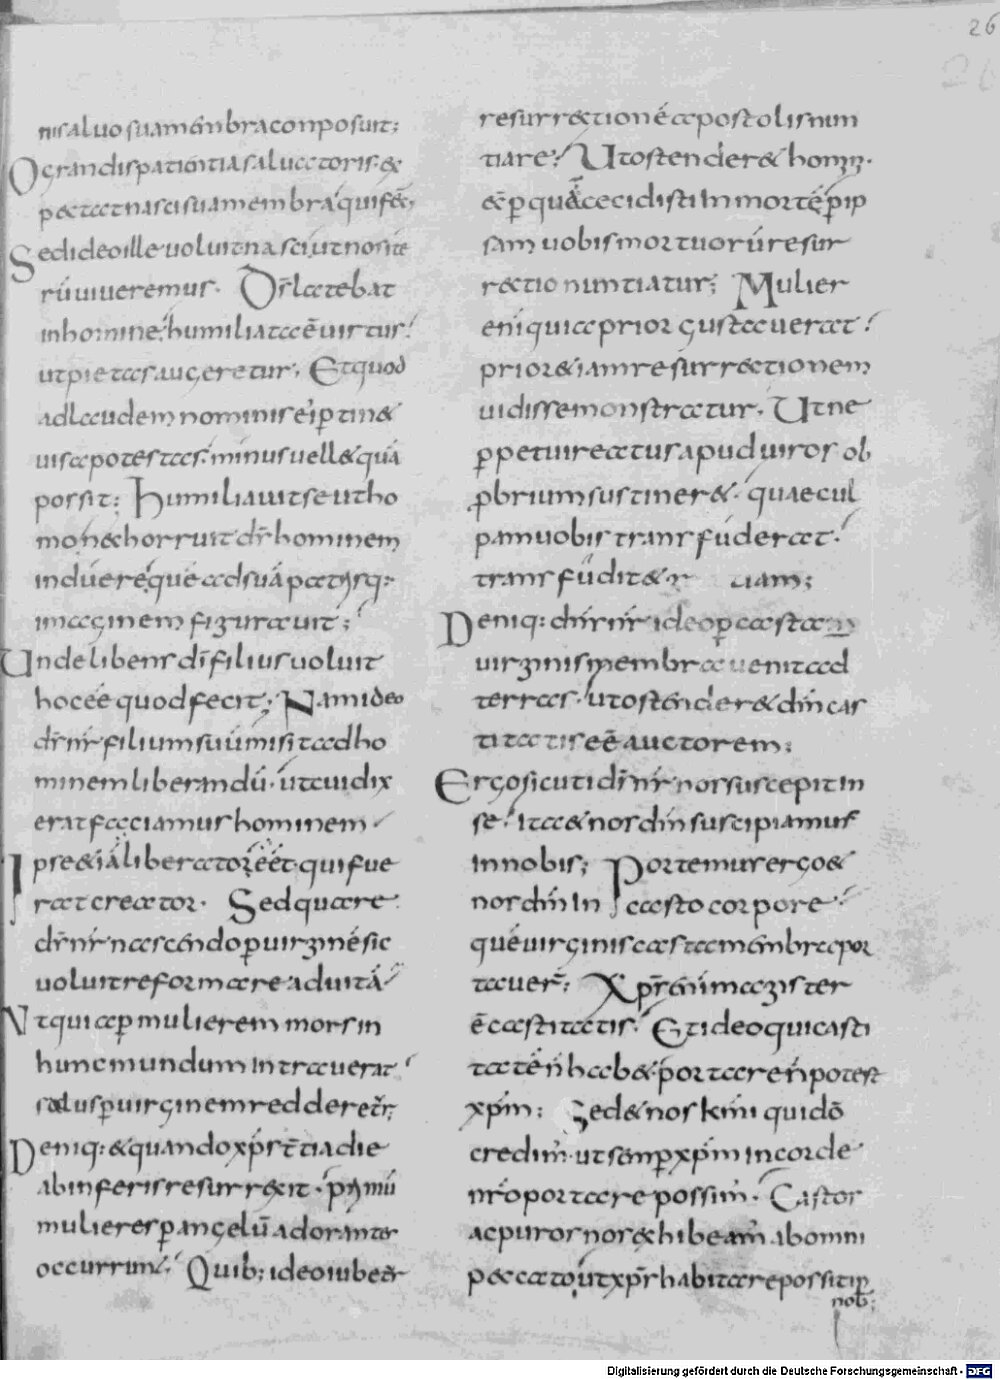 26
nisaluo suamembra conposuit;
O grandis patientia saluatoris· &
pectat nasci sua membra· qui fec̄;
Sed ideo ille uoluit nasci, ut nos ite
rū uiueremus· Dn̄s latebat
in homine· humiliata ē uirtus·
ut pietas augeretur, Et quod
ad laudem nominis ei ꝑtin&
uisa potestas· minus uell& quā
possit; Humiliauit se ut ho
mo· n̄ exhorruit dn̄s hominem
induere· quē ad suā patrisq:
imaginem figurauit;
Unde libens dī filius uoluit
hoc eē quod fecit; Nam ideo
dn̄s nr̄ filium suū misit ad ho
minem liberandū· ut cui dix
erat faciamus hominem
Ipse & iā liberatorē eēt· qui fue
rat creator· Sed quare
dn̄s nr̄ nascendo ꝑ uirginē sic
uoluit reformare ad uitā
Ut quia ꝑ mulierem mors in
hunc mundum intrauerat
salus ꝑ uirginem redderet̄;
Deniq: & quando xp̄s t̄tia die
ab inferis resurrexit· primū
mulieres ꝑ angelū adorantes
occurrunt· Quib; ideo iubet̄
resurrectionē apostolis nun
tiare· Ut ostender& homī·
ēꝑ quā cecidisti In mortē ꝑ ip
sam uobis mortuorū resur
rectio nuntiatur; Mulier
enī quia prior gustauerat·
prior & iam resurrectionem
uidisse monstratur. Ut ne
ꝑpetui reatus apud uiros ob
ꝓbrium sustiner&· quae cul
pam uobis transfuderat·
transfudit & uiam;
Deniq: dn̄s nr̄ ideo ꝑ casta
uirginis membra uenit ad
terras· ut ostender& dn̄m cas
titatis eē auctorem;
Ergo sicuti dn̄s nr̄ nos suscepit in
se· ita & nos dn̄m suscipiamus
in nobis; Portemus ergo &
nos dn̄m In casto corpore·
quē uirginis casta membra por
tauer̄; Xp̄s enim magister
ē castitatis· Et ideo qui casti
tatē n̄ hab&· portare n̄ potest
xp̄m; Sed & nos km̄i quidō
credim̄· ut semꝑ xp̄m in corde
nr̄o portare possim̄· Castos
ac puros nos exhibeam̄ ab omni
peccato· ut xp̄s habitare possit in
nob̄;
Digitalisierung gefördert durch die Deutsche Forschungsgemeinschaft - DFG